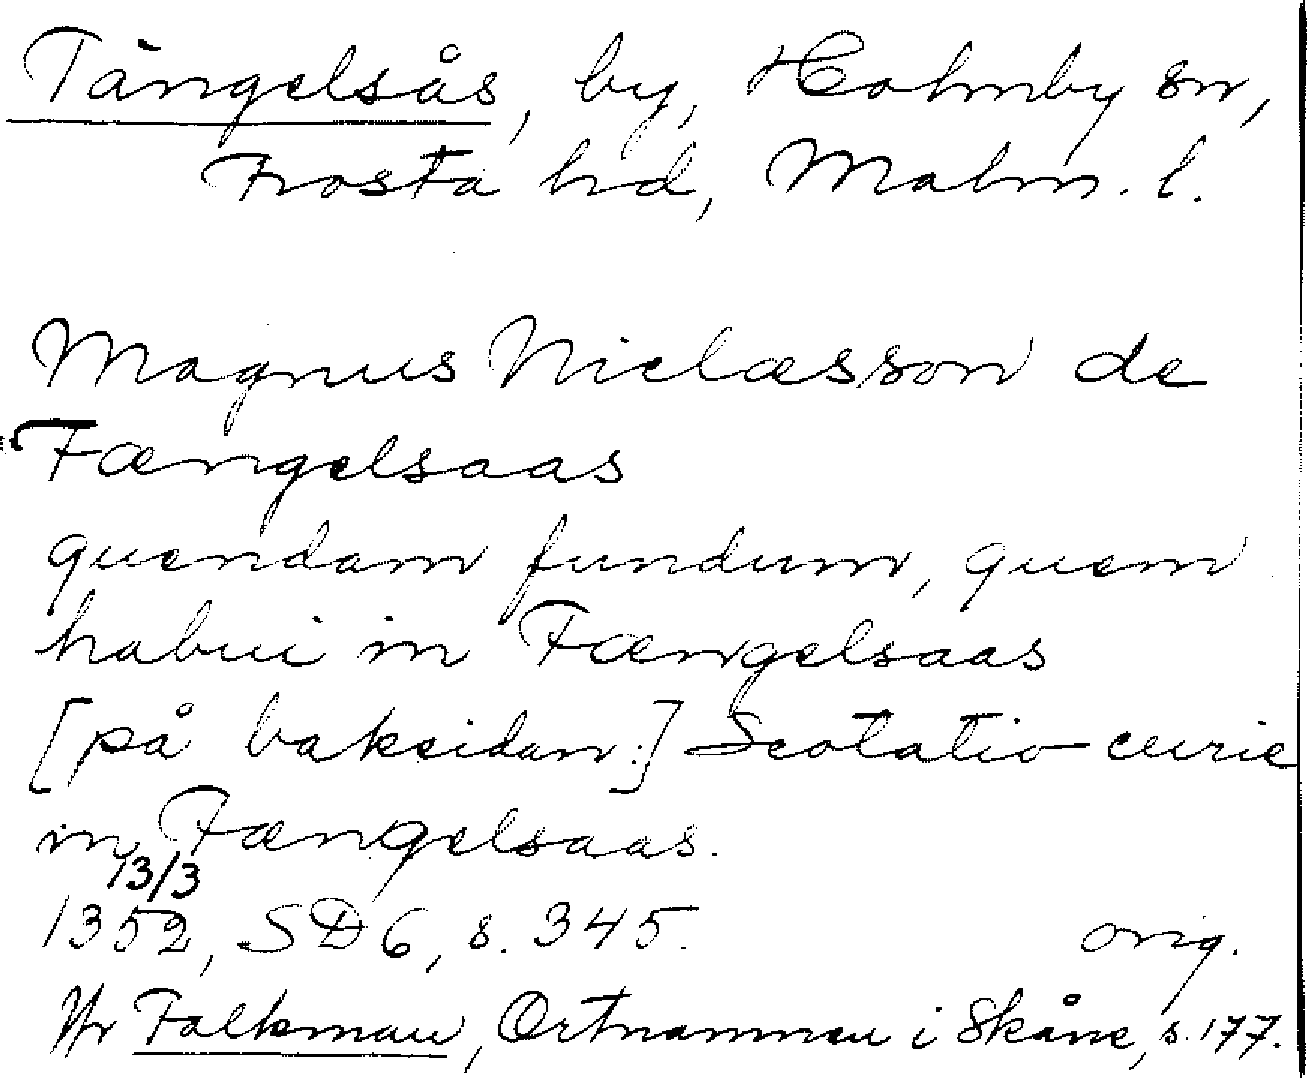 Tängelsås, by, Holmby sn,
Frosta hd, Malm. l.
Magnus Niclæsson de
Fængelsaas
quendam fundum, quem
habui in Fængelsaas
[på baksidan:] Scotatio curie
in Fængelsaas.
13/3
1352, SD 6, s. 345. orig.
Jfr Falkman, Ortnamnen i Skåne, s. 177.